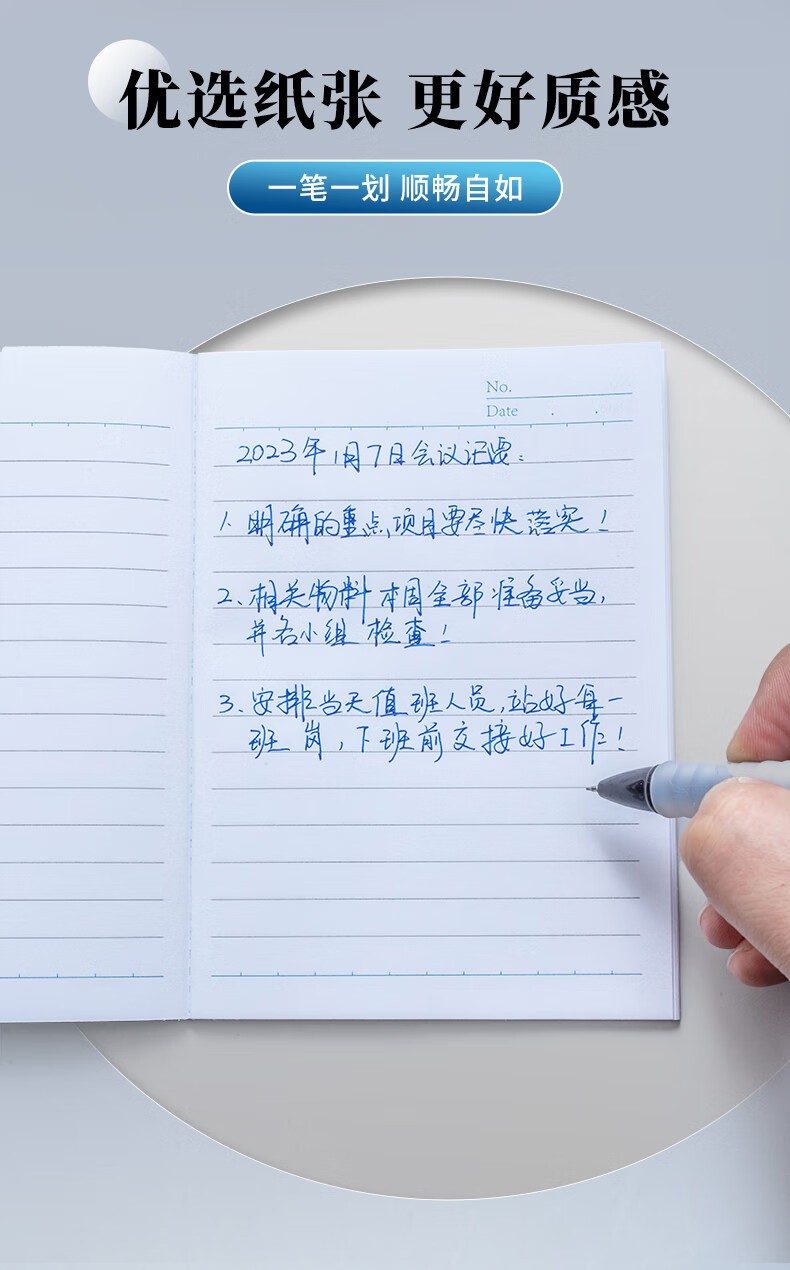 优选纸张 更好质感
一笔一划 顺畅自如
No.
Date . .
2023年1月7日会议记要:
1、明确的重点项目要尽快落实!
2、相关物料本周全部准备妥当,
并各小组 检查!
3、安排当天值班人员,站好每一
班岗,下班前交接好工作!